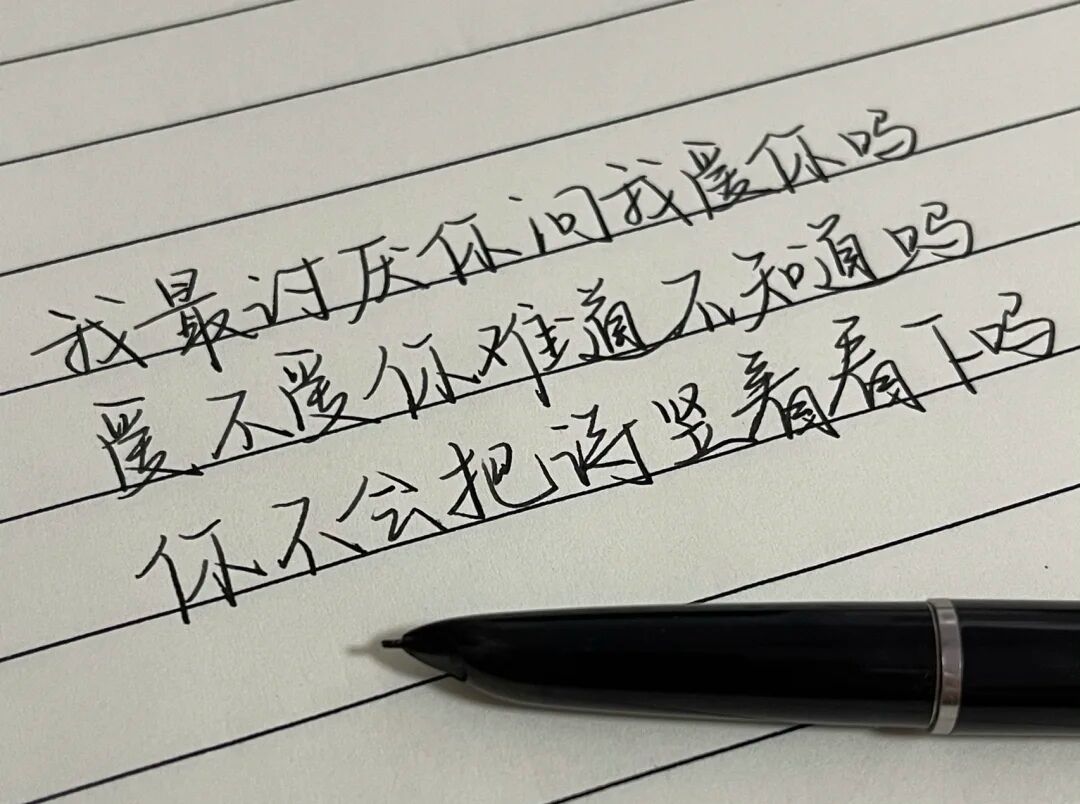 我最讨厌你问我爱你吗
爱不爱你难道不知道吗
你不会把诗竖着看下吗